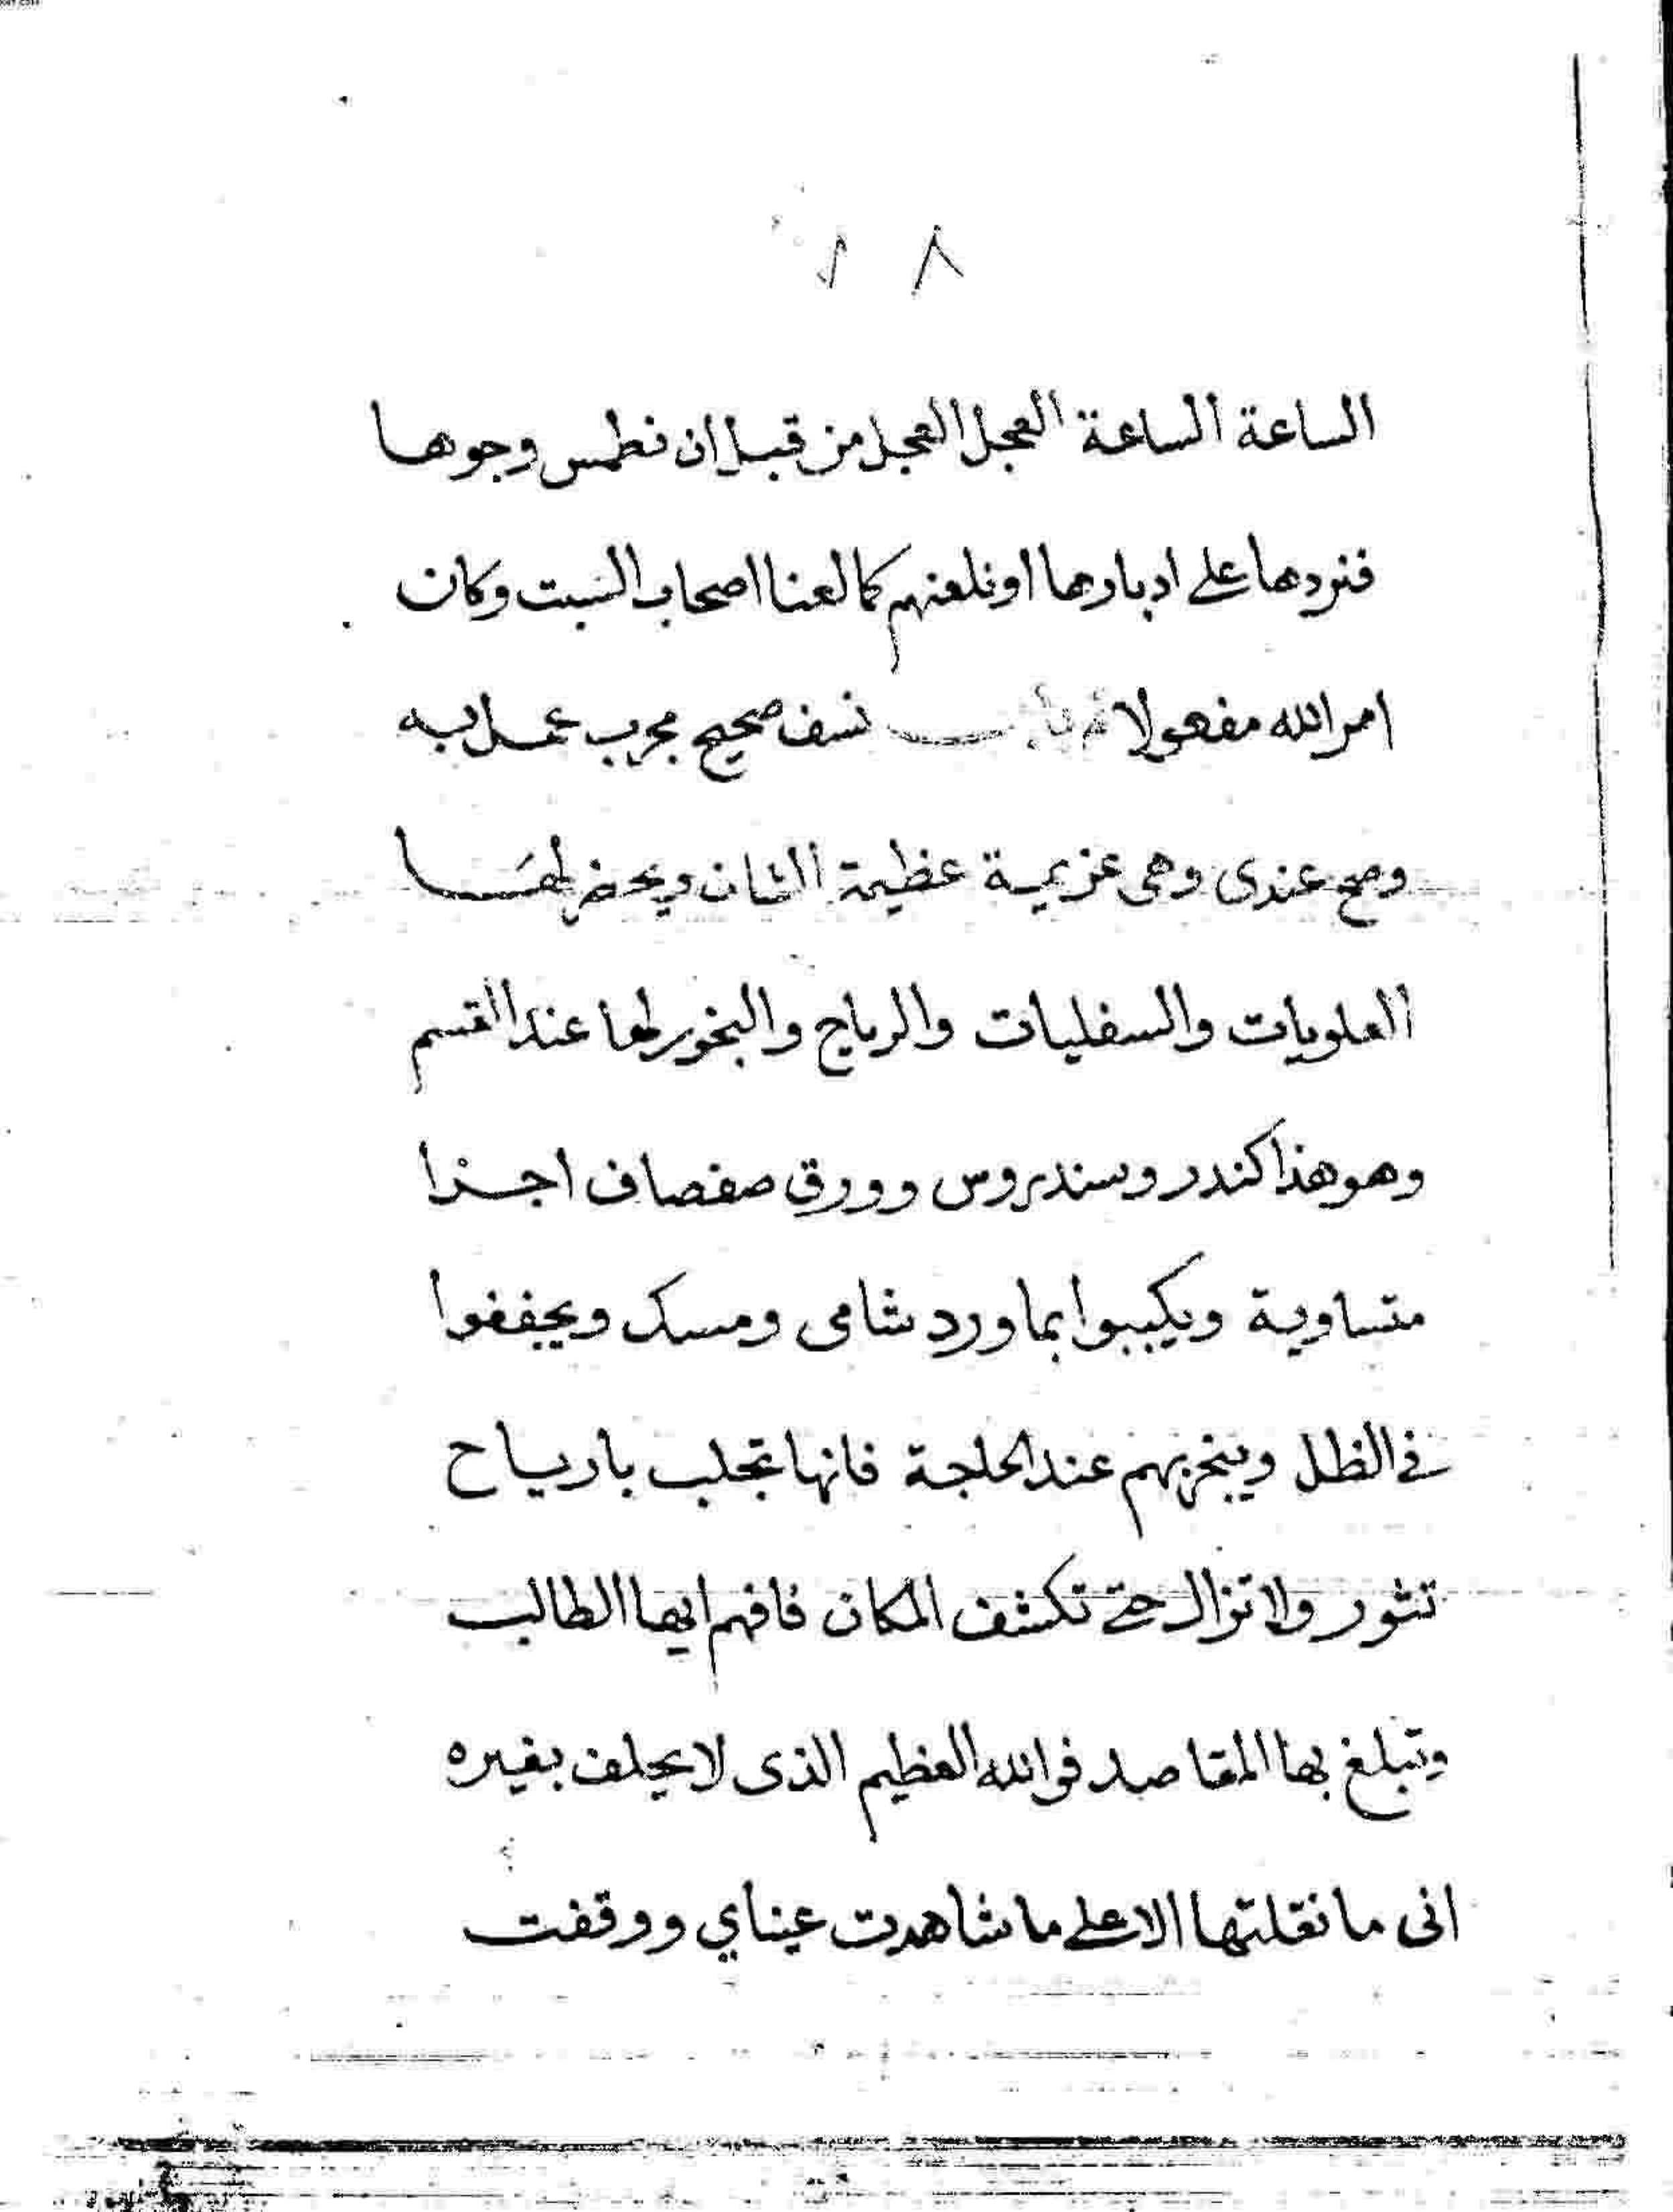 ٨
الساعة الساعة العجل العجل من قبل ان نطمس وجوها
فنردها على ادبارها او نلعنهم كما لعنا اصحاب السبت وكان
امر الله مفعولا نسف صحيح مجرب عمل به
وصح عندى وهى عزيمة عظيمة الشان ويحضر لها
العلويات والسفليات والرياح والبخور لها عند القسم
وهو هذا كندر وسندروس وورق صفصاف اجزا
متساوية ويكببوا بماورد شامى ومسك ويجففوا
فى الظل ويبخر بهم عند الحاجة فانها تجلب بارياح
تثور ولا تزال حتى تكشف المكان فافهم ايها الطالب
وتبلغ بها المقاصد فوالله العظيم الذى لا يحلف بغيره
انى ما نقلتها الا على ما شاهدت عيناي ووقفت